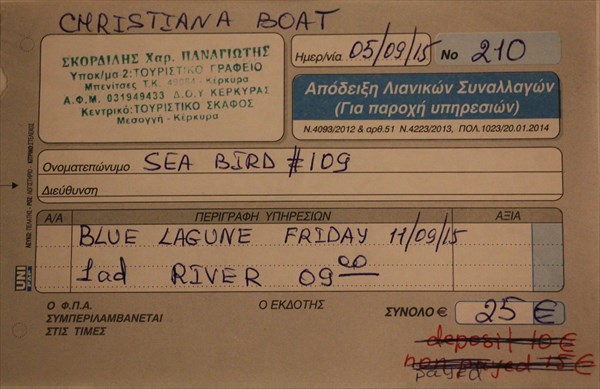 CHRISTIANA BOAT
ΣΚΟΡΔΙΛΗΣ Χαρ. ΠΑΝΑΓΙΩΤΗΣ
Υποκ/μα 2:ΤΟΥΡΙΣΤΙΚΟ ΓΡΑΦΕΙΟ
Μπενίτσες Τ.Κ. 49084 - Κέρκυρα
Α.Φ.Μ. 031949433 Δ.Ο.Υ ΚΕΡΚΥΡΑΣ
Κεντρικό:ΤΟΥΡΙΣΤΙΚΟ ΣΚΑΦΟΣ
Μεσογγή - Κέρκυρα
Ημερ/νία 05/09/15 No 210
Απόδειξη Λιανικών Συναλλαγών
(Για παροχή υπηρεσιών)
Ν.4093/2012 & αρθ.51 Ν.4223/2013, ΠΟΛ.1023/20.01.2014
Ονοματεπώνυμο SEA BIRD #109
Διεύθυνση
Α/Α ΠΕΡΙΓΡΑΦΗ ΥΠΗΡΕΣΙΩΝ ΑΞΙΑ
BLUE LAGUNE FRIDAY 11/09/15
1ad RIVER 09 00
UNI
PAP
Ο Φ.Π.Α. ΣΥΜΠΕΡΙΛΑΜΒΑΝΕΤΑΙ ΣΤΙΣ ΤΙΜΕΣ
Ο ΕΚΔΟΤΗΣ
ΣΥΝΟΛΟ € 25 €
deposit 10 €
non payed 15 €
payed